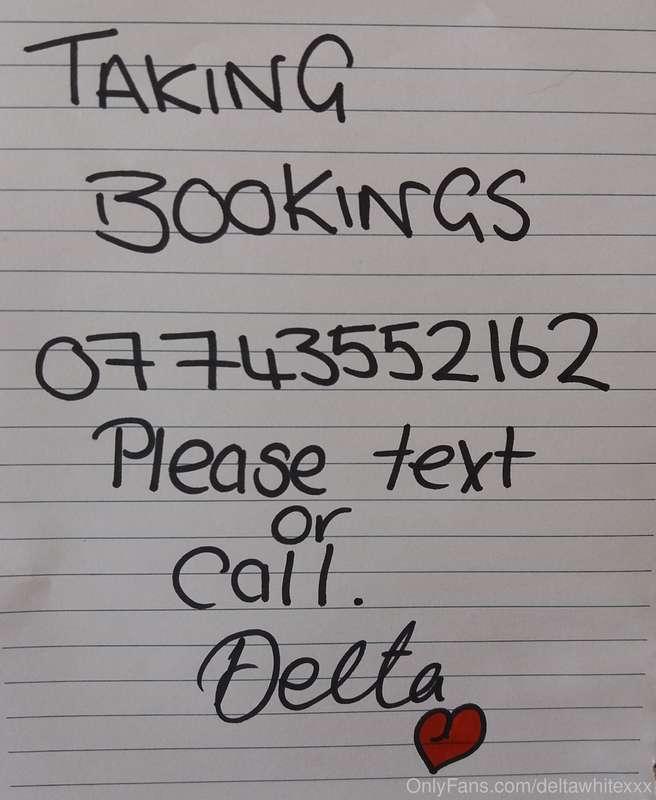 TAKING
BOOKINGS
07743552162
Please text
or
Call.
Delta
OnlyFans.com/deltawhitexxx